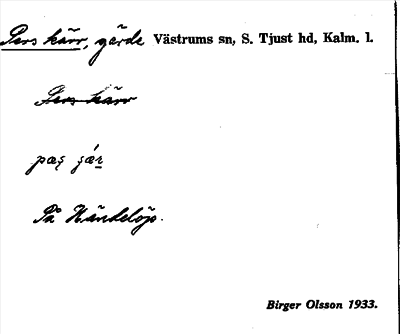 Pers kärr, gärde Västrums sn, S. Tjust hd, Kalm. l.
Pers kärr
På Händelöp.
Birger Olsson 1933.